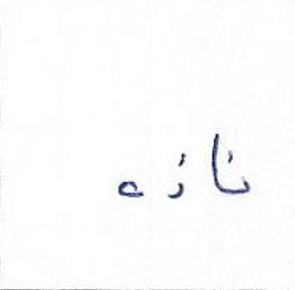 نازه